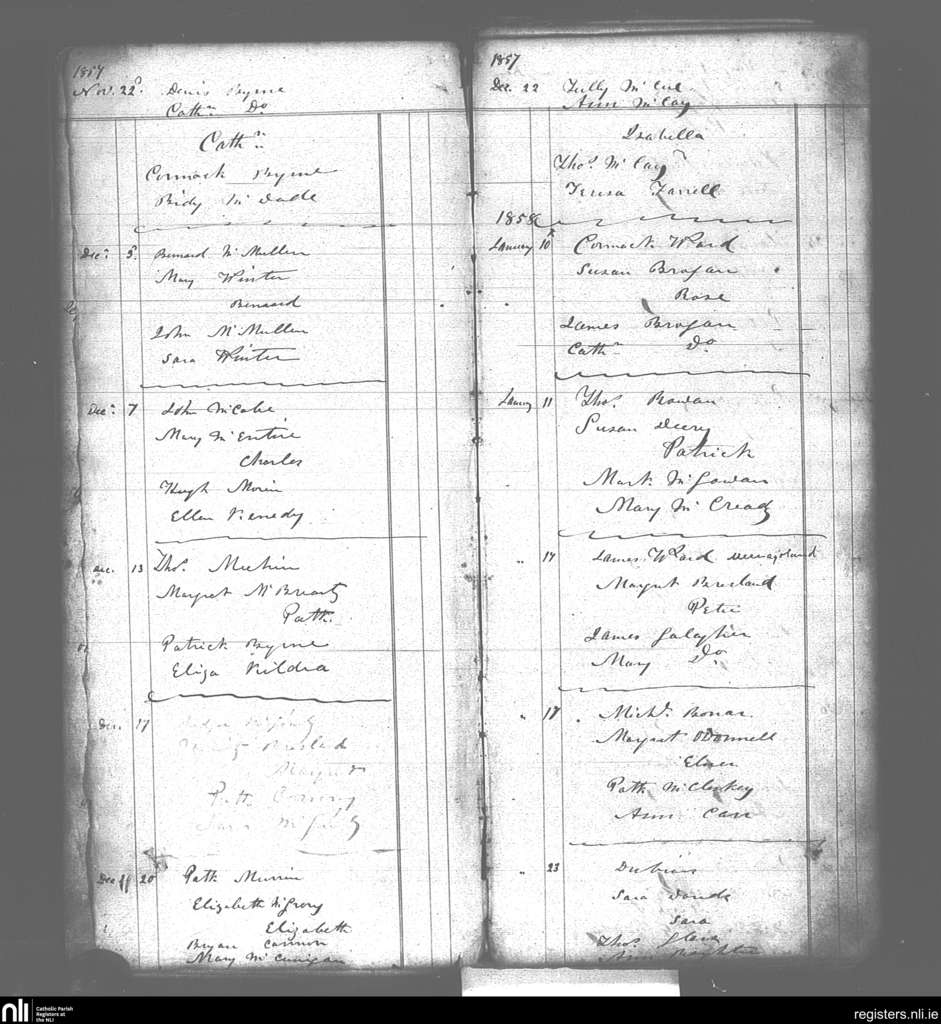 1857
Nov. 22d. Denis Byrne
Cathn Do
Cathn
Cormack Byrne
Bridy McDade
Decr. 5. Bernard McMullen
Mary Winter
Bernard
John McMullen
Sara Winter
Decr. 7 John McCabe
Mary McEntire
Charles
Hugh Morin
Ellen Kenedy
Dec. 13 Thos. Meehin
Margret McBrearty
Patk.
Patrick Byrne
Eliza Kildea
Dec. 17
Bresled
Margret
Patk
Sara McGinty
Dec 20 Patk Murrin
Elizabeth McGrory
Elizabeth
Bryan Cannon
Mary McCunigan
1857
Dec. 22 Tully McCue
Ann McCay
Isabella
Thos. McCay
Teresa Farrell
1858
January 10 Cormack Ward
Susan Brogan
Rose
James Brogan
Cathn Do
January 11 Thos. Rowan
Susan Deery
Patrick
Mark McGowan
Mary McCready
" 17 James Ward
Margret Bresland
Peter
James Galagher
Mary Do
" 17 Michl. Bonar
Margret ODonnell
Elenor
Patk McCloskey
Ann Carr
" 23 Dubius
Sara
Sara
Thos.
Ann
nli Catholic Parish
Registers at
the NLI
registers.nli.ie